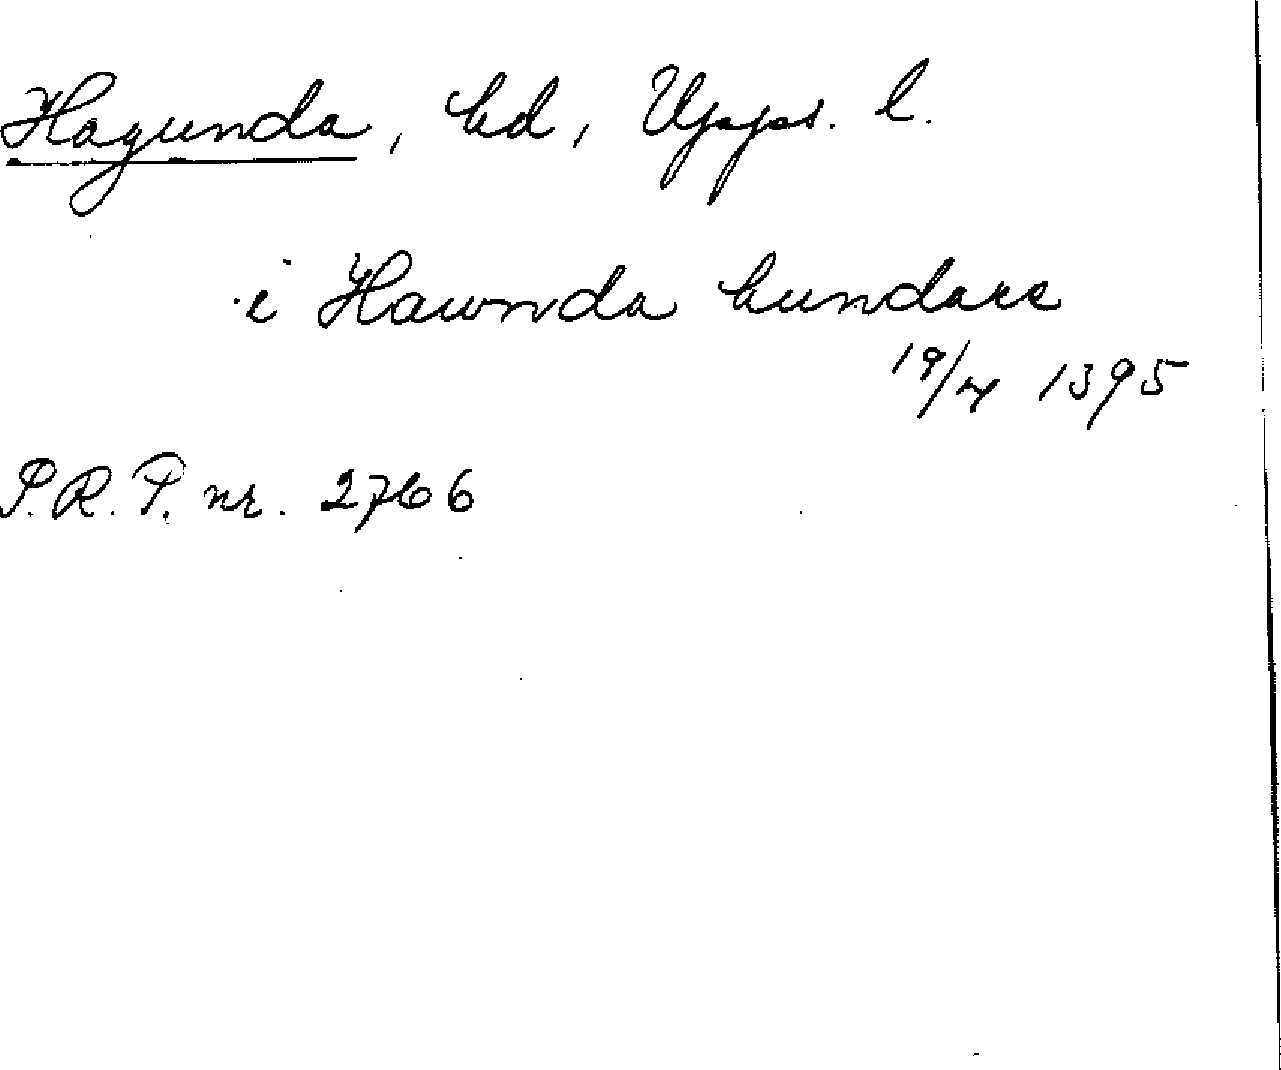 Hagunda, hd, Upps. l.
i Hawnda hundare
19/4 1395
P.R.P. nr. 2766